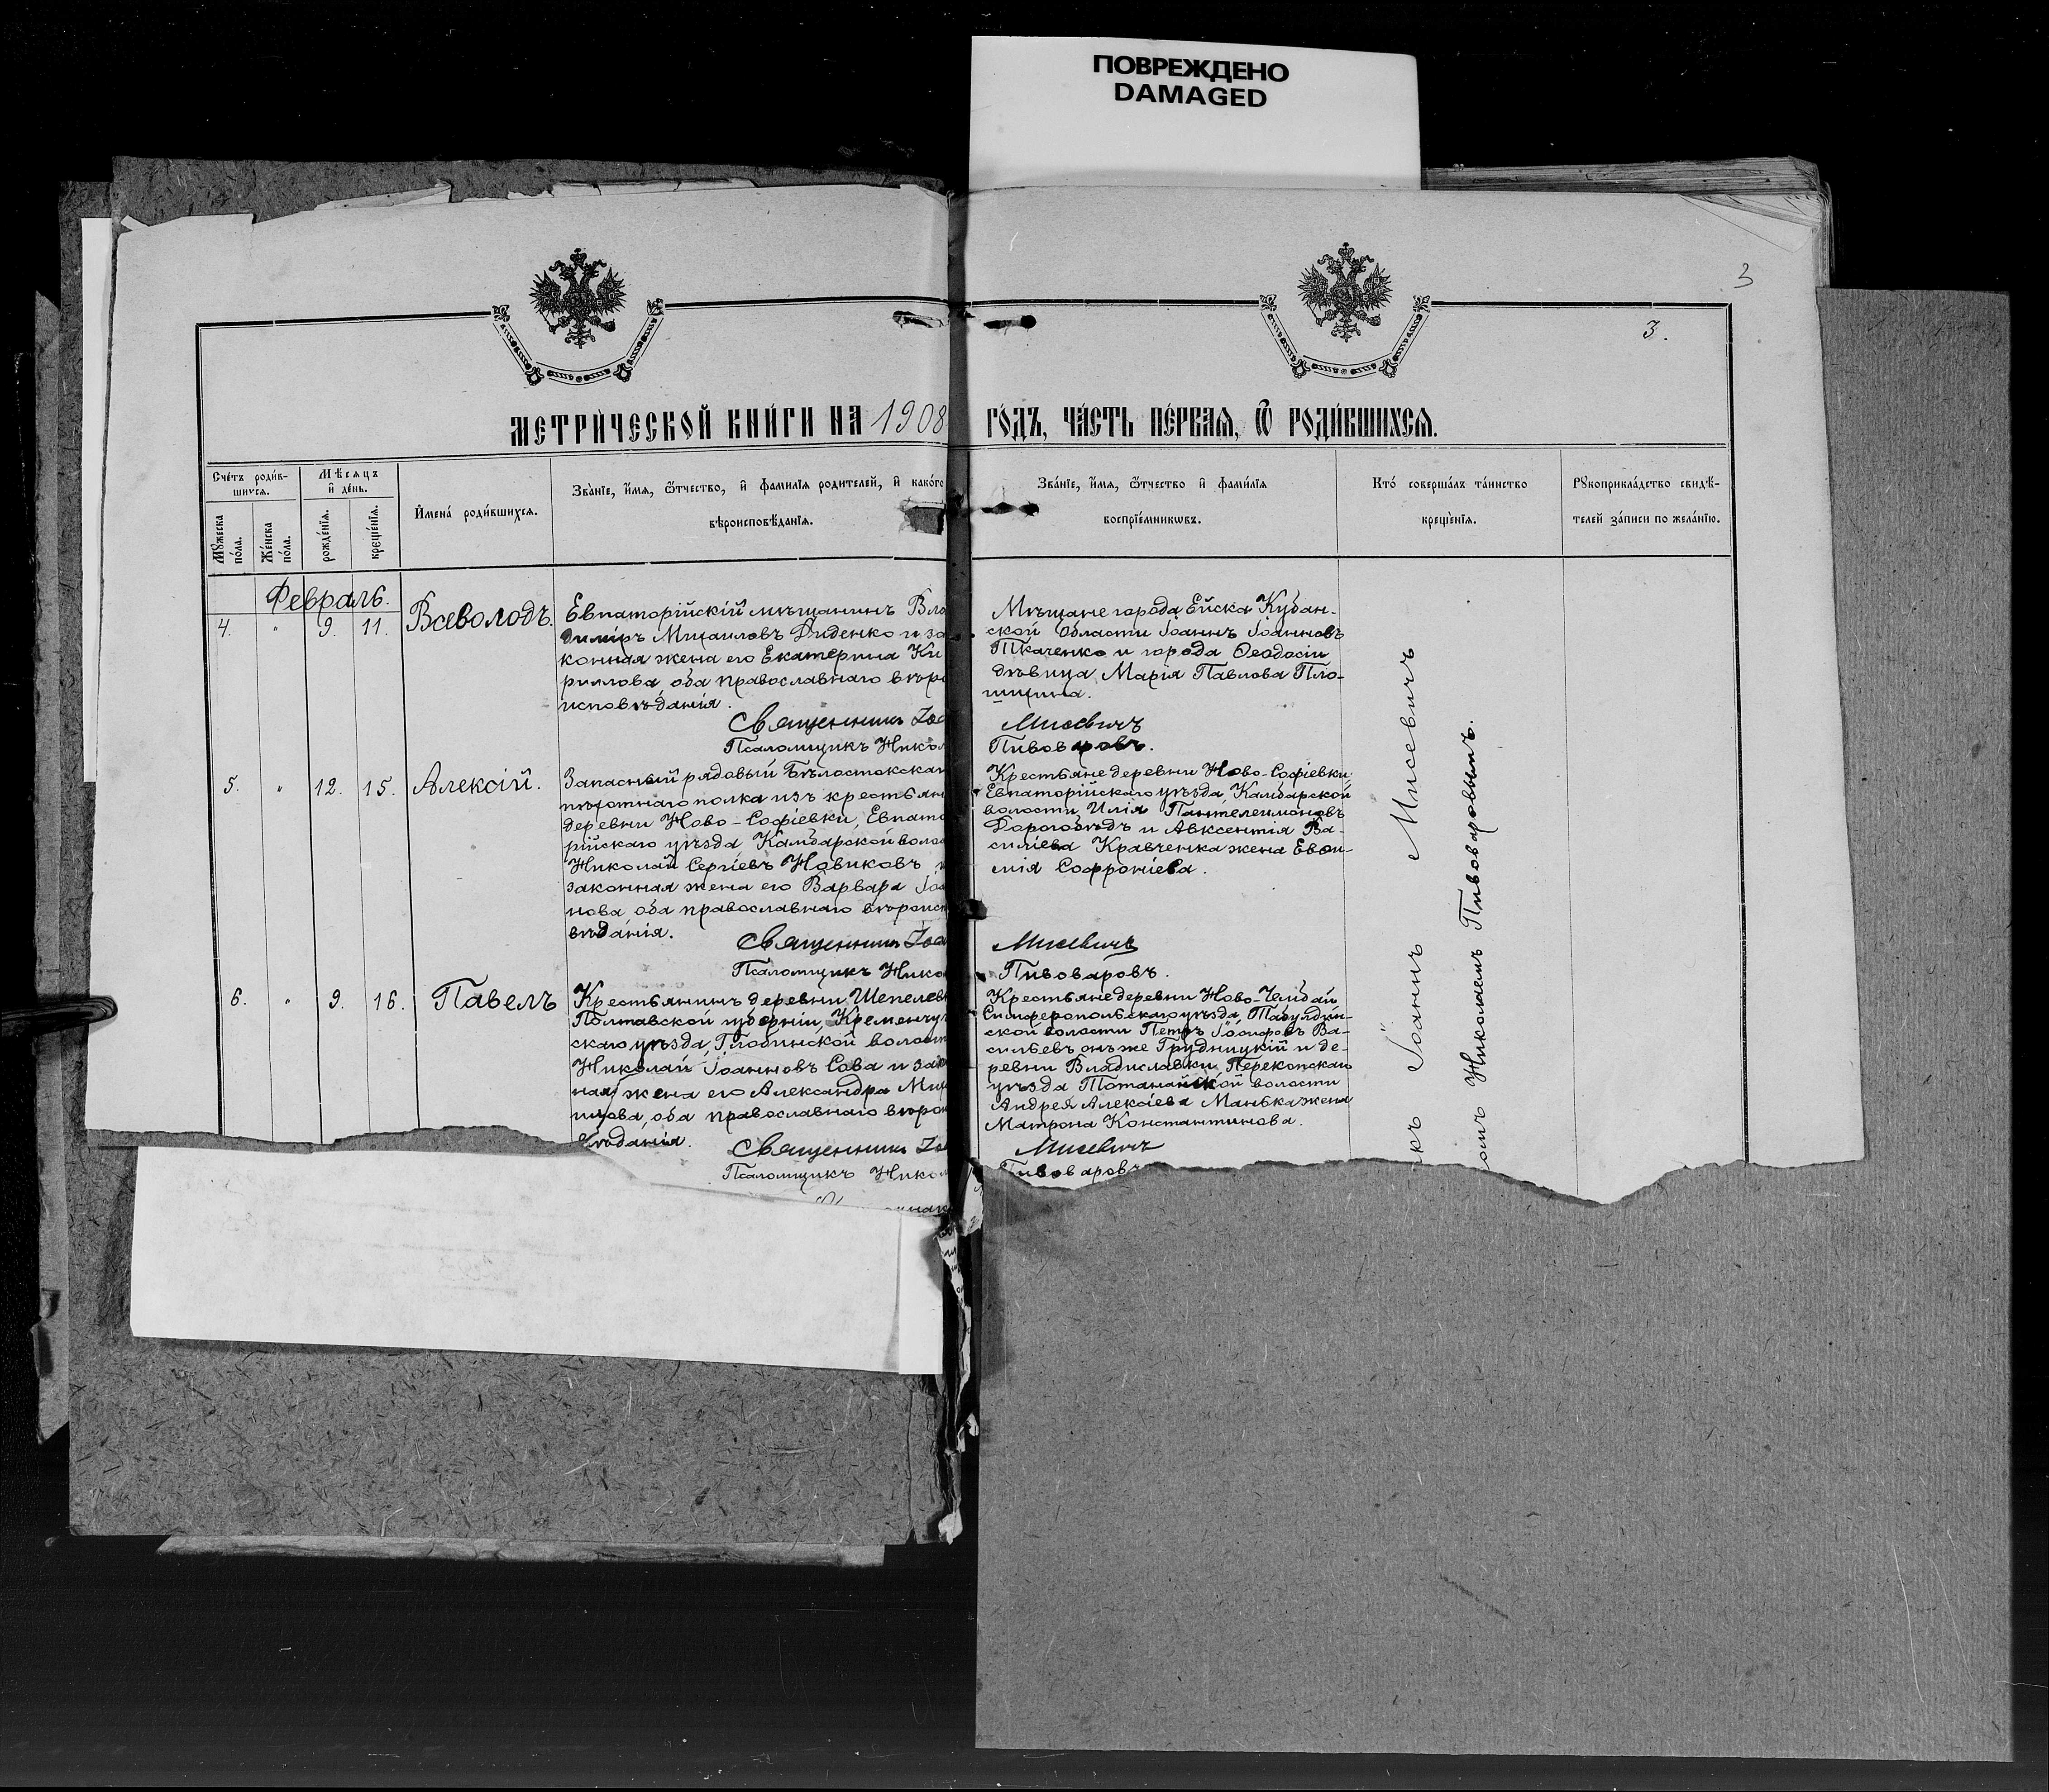 ПОВРЕЖДЕНО
DAMAGED
3
3.
МЕТРИ́ЧЕСКОЙ КНИ́ГИ НА 1908
ГО́ДЪ, ЧА́СТЬ ПЕ́РВАѦ, Ѿ РОДИ́ВШИХСѦ.
Сче́тъ роди́в-
шихсѧ.
Мꙋ́жеска по́ла.
Же́нска по́ла.
Мѣ́сѧцъ
и҆ де́нь.
рожде́нїѧ.
креще́нїѧ.
И҆мена̀ роди́вшихсѧ.
Зва́нїе, и҆́мѧ, ѻ҆́тчество, и҆ фами́лїѧ роди́телей, и҆ како́го
вѣроисповѣ́данїѧ.
Зва́нїе, и҆́мѧ, ѻ҆́тчество и҆ фами́лїѧ
воспрїе́мникѡвъ.
Кто́ соверша́лъ та́инство
креще́нїѧ.
Рꙋкоприкла́дство свидѣ́-
телей за́писи по жела́нїю.
Февраль.
4. " 9. 11. Всеволодъ.
Евпаторійскій мѣщанинъ Вла
диміръ Михаиловъ Диденко и за
конная жена его Екатерина Ки
риллова, оба православнаго вѣро
исповѣданія.
Священникъ Іоа
Псаломщикъ Никол
Мѣщане города Ейска Кубан-
ской Области Іоаннъ Іоанновъ
Ткаченко и города Ѳеодосіи
дѣвица Марія Павлова Пло-
Мисевичъ
Пивоваровъ.
5. " 12. 15. Алексій.
Запасный рядовый Бѣлостокскаг
пѣхотнаго полка изъ крестьян
деревни Ново-Софіевки, Евпато
рійскаго уѣзда Камбарской волос
Николай Сергіевъ Новиковъ и
законная жена его Варвара Іоа
нова, оба православнаго вѣроисп
вѣданія.
Священникъ Іоа
Псаломщикъ Нико
Крестьяне деревни Ново-Софіевки
Евпаторійскаго уѣзда, Камбарской
волости, Илія Пантелеимоновъ
Дорогобѣдъ и Авксентія Ва-
силіева Кравченка жена Евѳи-
мія Софроніева.
Мисевичъ
Пивоваровъ.
6. " 9. 16. Павелъ
Крестьянинъ деревни Шепелев
Полтавской губерніи, Кременчуг
скаго уѣзда, Глобинской волост
Николай Іоанновъ Сова и зак
ная жена его Александра
оба православнаго вѣрои
вѣданія.
Священникъ Іоа
Псаломщикъ Никол
Крестьяне деревни Ново-Челбай
Симферопольскаго уѣзда, Табулдин-
ской волости Петръ Іосифовъ Ва-
сильевъ онъ же Грудницкій и де-
ревни Владиславки, Перекопскаго
уѣзда волости
Андрея Алексіева Манька жена
Матрона Константинова.
Мисевичъ
Пивоваровъ
къ Іоаннъ Мисевичъ
омъ Николаемъ Пивоваровымъ.